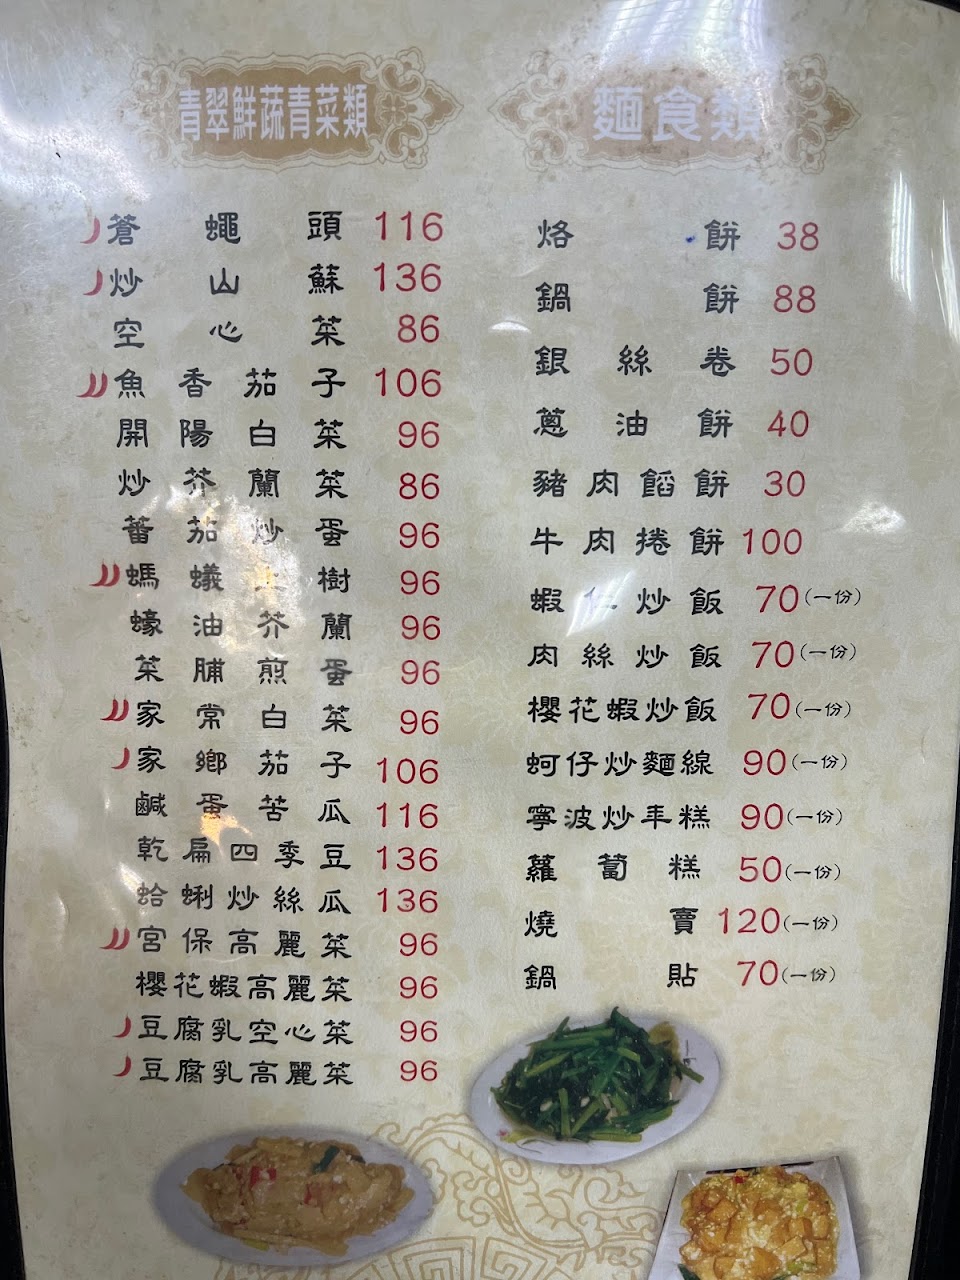 青翠鮮蔬青菜類
蒼蠅頭 116
炒山蘇 136
空心菜 86
魚香茄子 106
開陽白菜 96
炒芥蘭菜 86
蕃茄炒蛋 96
螞蟻上樹 96
蠔油芥蘭 96
菜脯煎蛋 96
家常白菜 96
家鄉茄子 106
鹹蛋苦瓜 116
乾扁四季豆 136
蛤蜊炒絲瓜 136
宮保高麗菜 96
櫻花蝦高麗菜 96
豆腐乳空心菜 96
豆腐乳高麗菜 96
麵食類
烙餅 38
鍋餅 88
銀絲卷 50
蔥油餅 40
豬肉餡餅 30
牛肉捲餅 100
蝦仁炒飯 70(一份)
肉絲炒飯 70(一份)
櫻花蝦炒飯 70(一份)
蚵仔炒麵線 90(一份)
寧波炒年糕 90(一份)
蘿蔔糕 50(一份)
燒賣 120(一份)
鍋貼 70(一份)